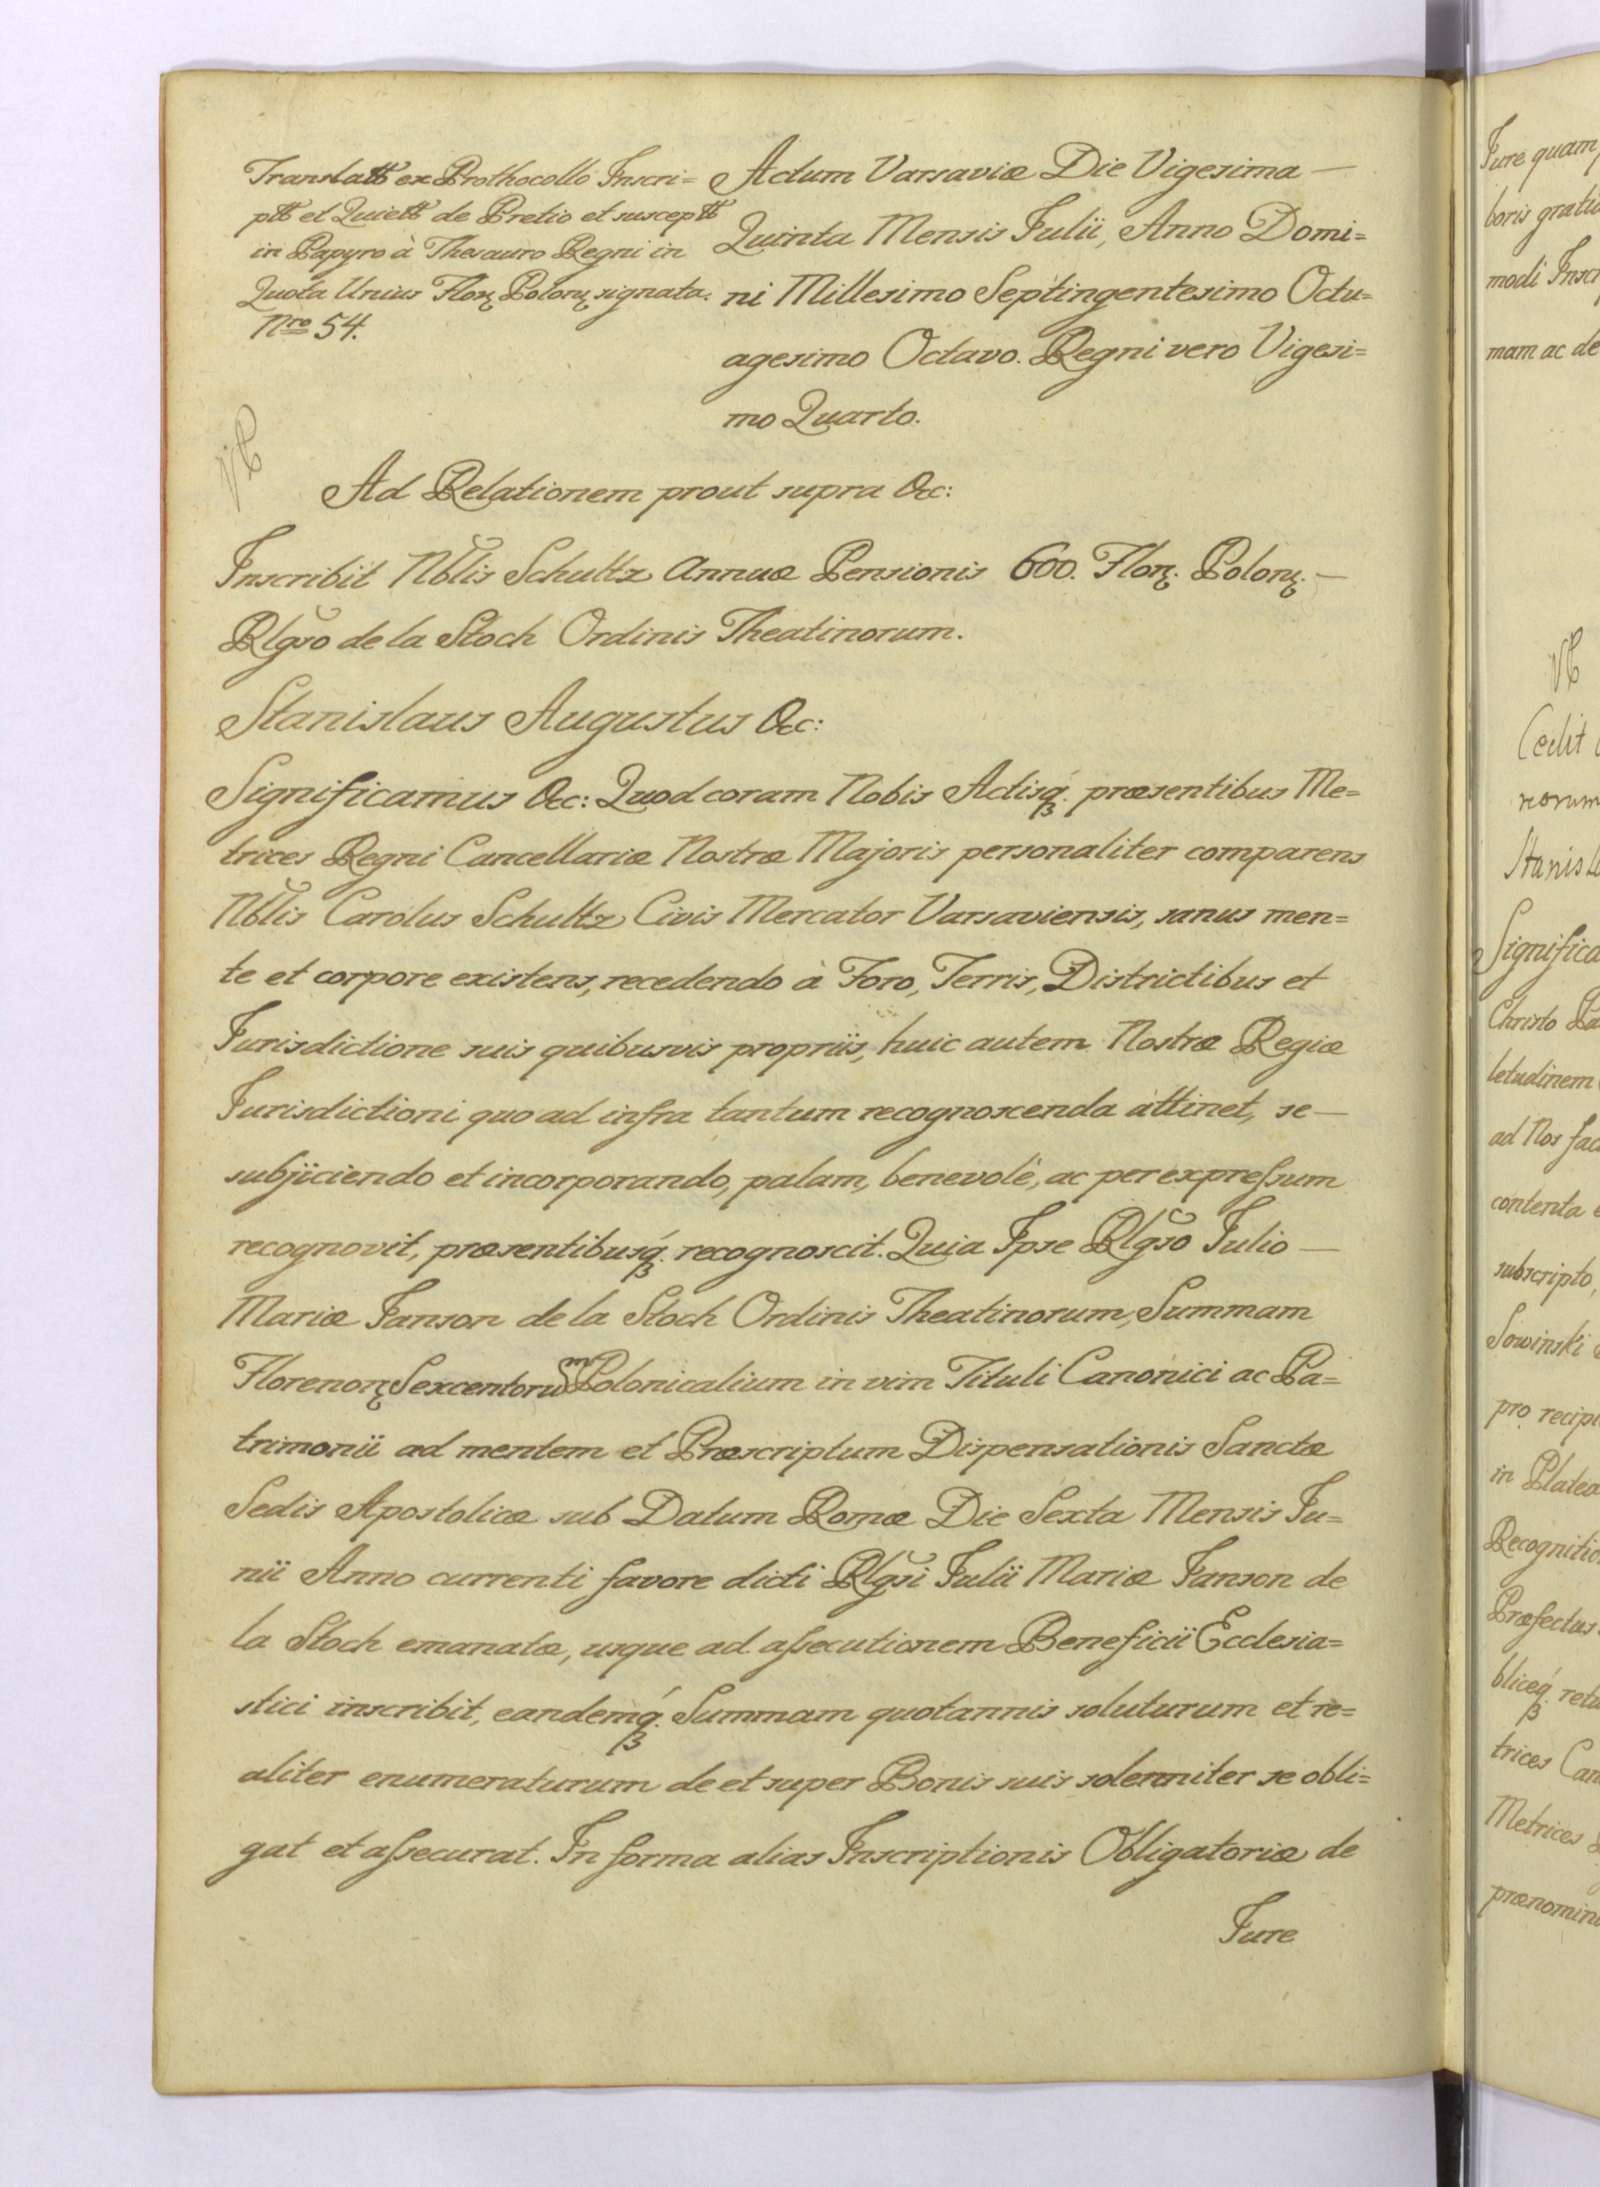 Translatt ex Prothocollo Inscri=
ptt et Quiett de Pretio et susceptt
in Papyro à Thesauro Regni in
Quota Unius Flor. Polon. signata.
Nro 54.
Actum Varsaviæ Die Vigesima —
Quinta Mensis Julii, Anno Domi=
ni Millesimo Septingentesimo Octu=
agesimo Octavo. Regni vero Vigesi=
mo Quarto.
Ad Relationem prout supra &c:
Inscribit Nblis Schultz Annuæ Pensionis 600. Flor. Polon. —
Rlgso de la Stoch Ordinis Theatinorum.
Stanislaus Augustus &c:
Significamus &c: Quod coram Nobis Actisq. præsentibus Me=
trices Regni Cancellariæ Nostræ Majoris personaliter comparens
Nblis Carolus Schultz Civis Mercator Varsaviensis, sanus men=
te et corpore existens, recedendo à Foro, Terris, Districtibus et
Jurisdictione suis quibusvis propriis, huic autem Nostræ Regiæ
Jurisdictioni quo ad infra tantum recognoscenda attinet, se —
subjiciendo et incorporando, palam, benevolè, ac per expreſsum
recognovit, præsentibusq. recognoscit. Quia Ipse Rlgso Julio —
Mariæ Janson de la Stoch Ordinis Theatinorum, Summam
Florenor. Sexcentorum Polonicalium in vim Tituli Canonici ac Pa=
trimonii ad mentem et Præscriptum Dispensationis Sanctæ
Sedis Apostolicæ sub Datum Romæ Die Sexta Mensis Ju=
nii Anno currenti favore dicti Rlgsi Julii Mariæ Janson de
la Stoch emanatæ, usque ad aſsecutionem Beneficii Ecclesia=
stici inscribit, eandemq. Summam quotannis soluturum et re=
aliter enumeraturum de et super Bonis suis solenniter se obli=
gat et aſsecurat. In forma alias Inscriptionis Obligatoriæ de
Jure
Jure quam
boris gratia
modi Inscr
mam ac de
Cedit
norum
Stanisl
Significa
Christo Pa
letudinem
ad Nos fac
contenta
subscripto,
Sowinski
pro recipi
in Platea
Recognitio
Præfectus
bliceq. retu
trices Can
Metrices
prænomin